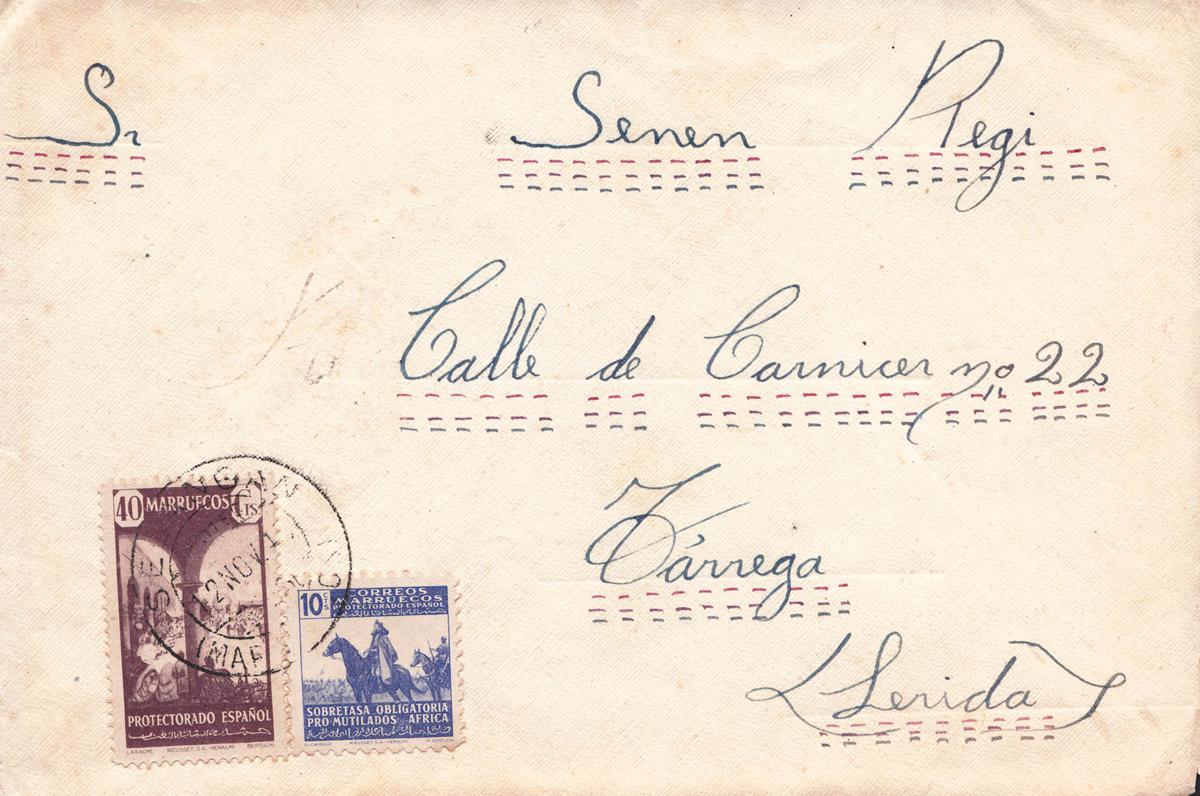 Sr Senen Regi
Calle de Carnicer nº 22
Tárrega
(Lerida)
40 MARRUECOS CTS
PROTECTORADO ESPAÑOL
LARACHE RIEUSSET S.A.-HERALMI BERTUCHI
12 NOV
10 CTS
CORREOS
MARRUECOS
PROTECTORADO ESPAÑOL
SOBRETASA OBLIGATORIA
PRO-MUTILADOS AFRICA
EL CAUDILLO RIEUSSET S.A.-HERALMI M. BERTUCHI